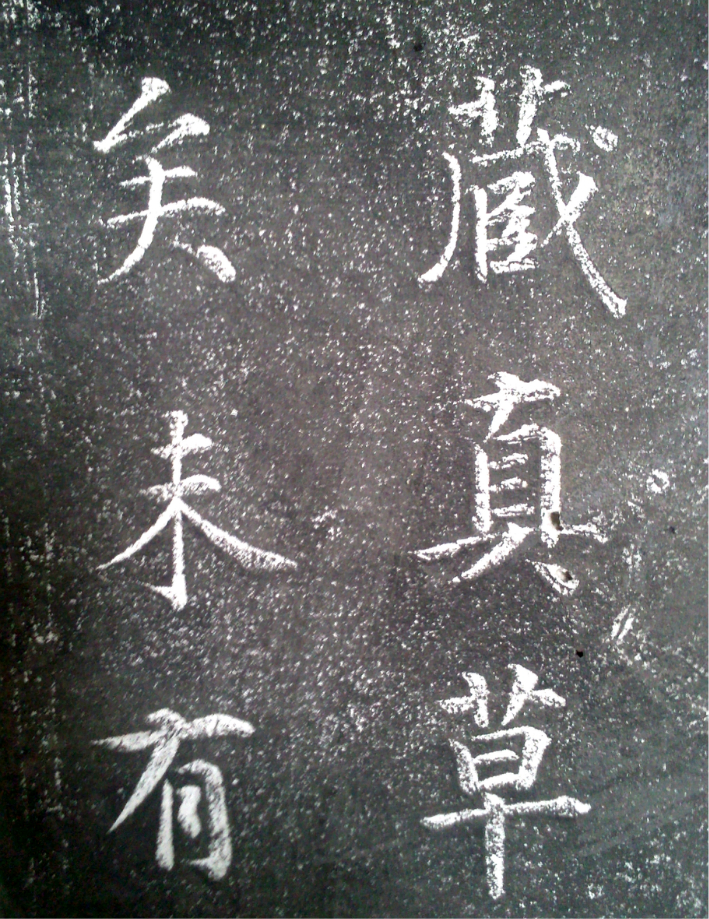 藏真草
矣未有